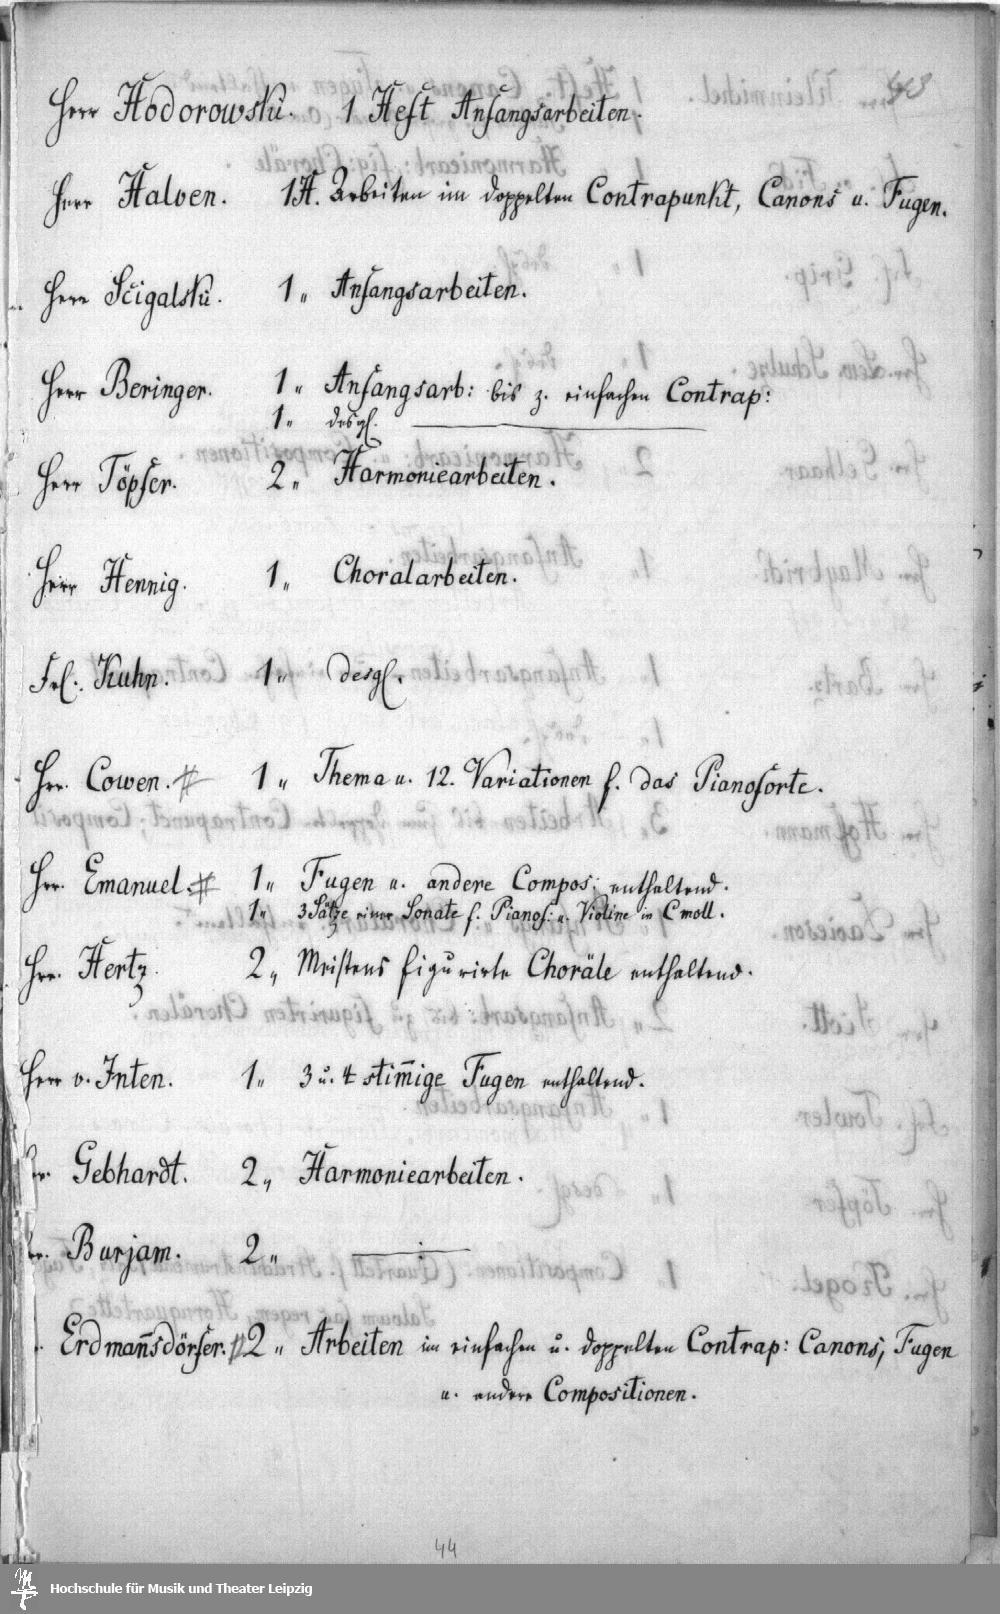 Herr Hodorowski. 1 Heft Anfangsarbeiten.
Herr Halven. 1 H. Arbeiten im doppelten Contrapunkt, Canons u. Fugen.
Herr Scigalski. 1 „ Anfangsarbeiten.
Herr Beringer. 1 „ Anfangsarb: bis z. einfachen Contrap:
1 „ desgl.
Herr Töpfer. 2 „ Harmoniearbeiten.
Herr Hennig. 1 „ Choralarbeiten.
Frl. Kuhn. 1 „ desgl.
Hr. Cowen. # 1 „ Thema u. 12. Variationen f. das Pianoforte.
Hr. Emanuel. # 1 „ Fugen u. andere Compos: enthaltend.
1 „ 3 Sätze einer Sonate f. Pianof: u. Violine in C moll.
Hr. Hertz. 2 „ Meistens figurirte Choräle enthaltend.
Herr v. Inten. 1 „ 3 u. 4 stim̅ige Fugen enthaltend.
Hr. Gebhardt. 2 „ Harmoniearbeiten.
Hr. Burjam. 2 „
Erdman̅sdörfer. # 2 „ Arbeiten im einfachen u. doppelten Contrap: Canons, Fugen
u. andere Compositionen.
44
Hochschule für Musik und Theater Leipzig